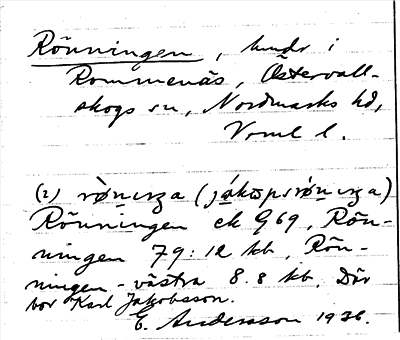 Rönningen, hmdr i
Rommenäs, Östervall-
skogs sn, Nordmarks hd,
Vrml l.
(2)
Rönningen ek G69, Rön-
ningen 79:12 kb, Rön-
ningen - västra 8.8 kb. Där
bor Karl Jakobsson.
E. Andersson 1936.